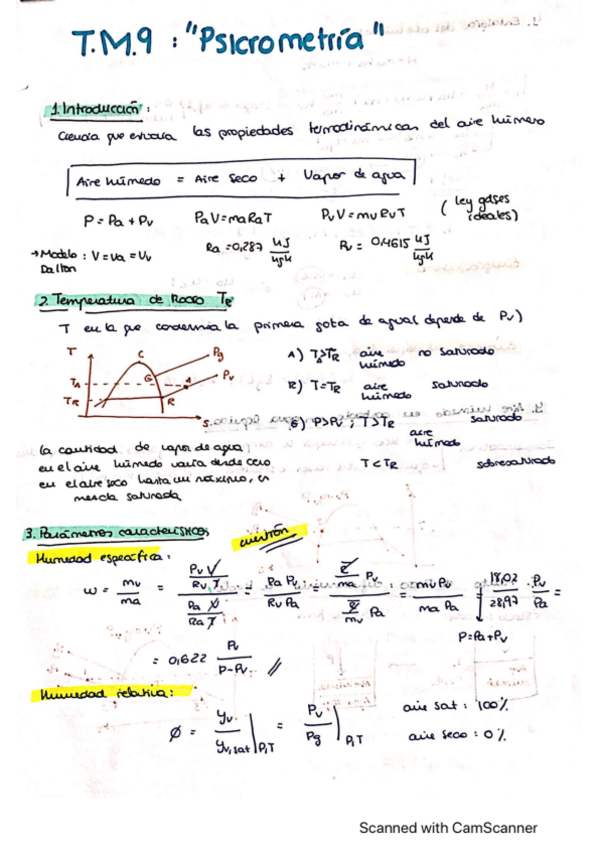 T.M.9 : "Psicrometría"
1. Introducción :
Ciencia que estudia las propiedades termodinámicas del aire húmedo
Aire húmedo = Aire seco + Vapor de agua
P = Pa + Pv   PaV = maRaT   PvV = mvRvT   (ley gases ideales)
→ Modelo Dalton : V = Va = Vv   Ra = 0,287 kJ/kgK   Rv = 0,4615 kJ/kgK
2. Temperatura de Rocío TR
T en la que condensa la primera gota de agua (depende de Pv)
T C Pg
G Pv
TA A
TR R
S
A) T>TR aire húmedo no saturado
R) T=TR aire húmedo saturado
G) P>Pv ; T>TR aire húmedo saturado
T<TR sobresaturado
La cantidad de vapor de agua
en el aire húmedo varía desde cero
en el aire seco hasta un máximo, en
mezcla saturada
3. Parámetros característicos
cuestión
Humedad específica :
w = mv/ma = (Pv V / Rv T) / (Pa V / Ra T) = Ra Pv / Rv Pa = (R/ma Pv) / (R/mv Pa) = mv Pv / ma Pa = 18,02/28,97 · Pv/Pa =
P=Pa+Pv
= 0,622 Pv / P-Pv //
Humedad relativa :
Ø = yv / yv,sat |P,T = Pv / Pg |P,T
aire sat : 100%
aire seco : 0%
Scanned with CamScanner